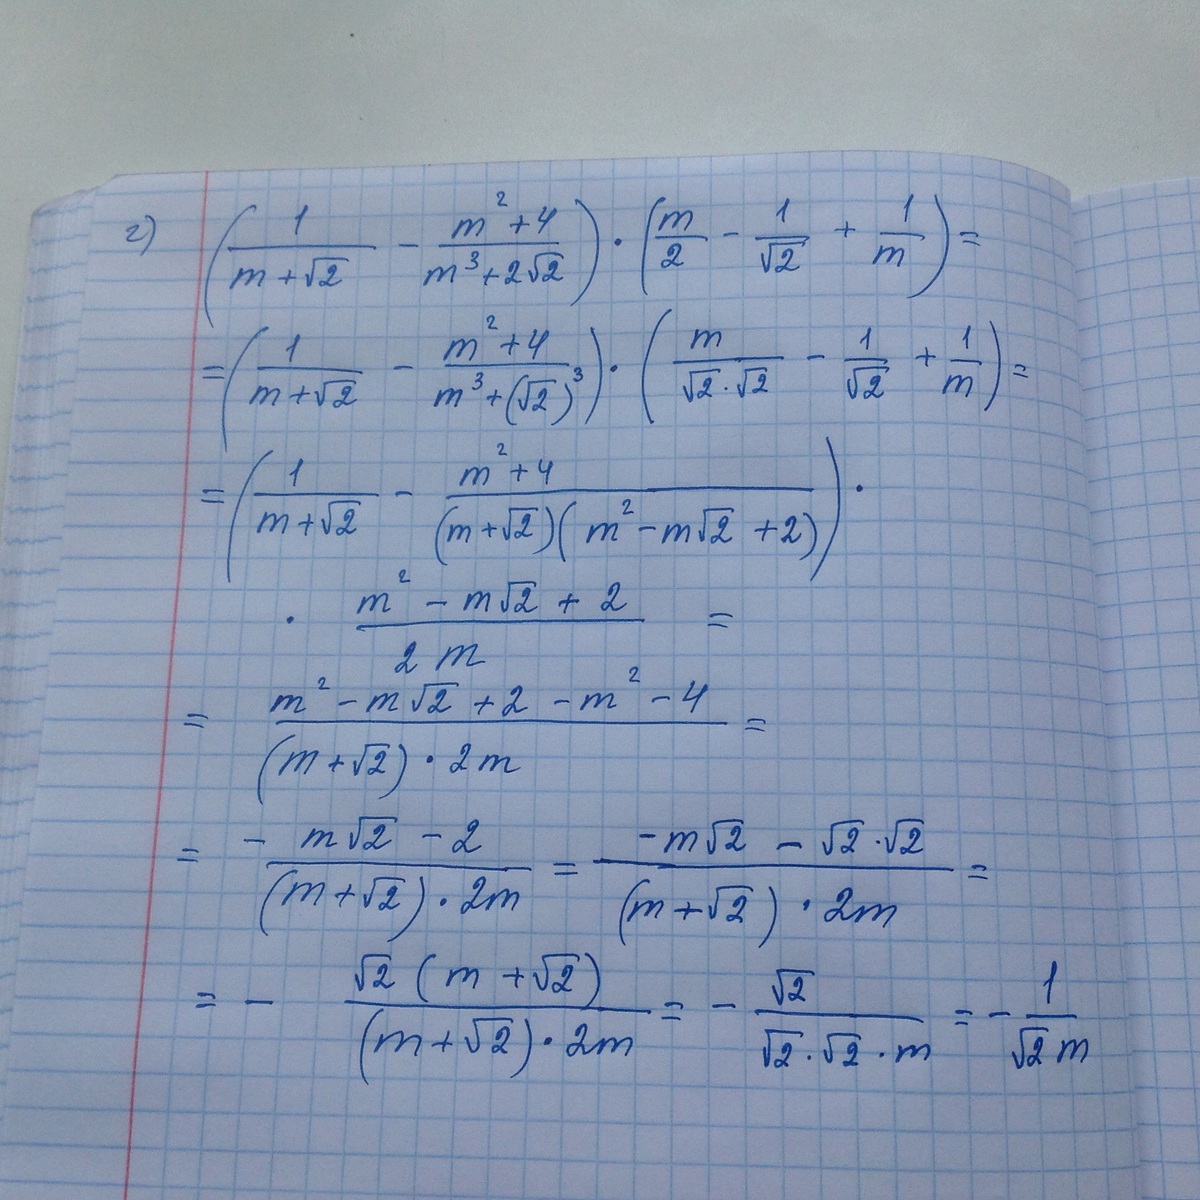 г) (1/(m+√2) − (m²+4)/(m³+2√2)) · (m/2 − 1/√2 + 1/m) =
= (1/(m+√2) − (m²+4)/(m³+(√2)³)) · (m/(√2·√2) − 1/√2 + 1/m) =
= (1/(m+√2) − (m²+4)/((m+√2)(m²−m√2+2))) ·
· (m²−m√2+2)/(2m) =
= (m²−m√2+2−m²−4)/((m+√2)·2m) =
= (−m√2−2)/((m+√2)·2m) = (−m√2−√2·√2)/((m+√2)·2m) =
= − (√2(m+√2))/((m+√2)·2m) = − √2/(√2·√2·m) = − 1/(√2m)